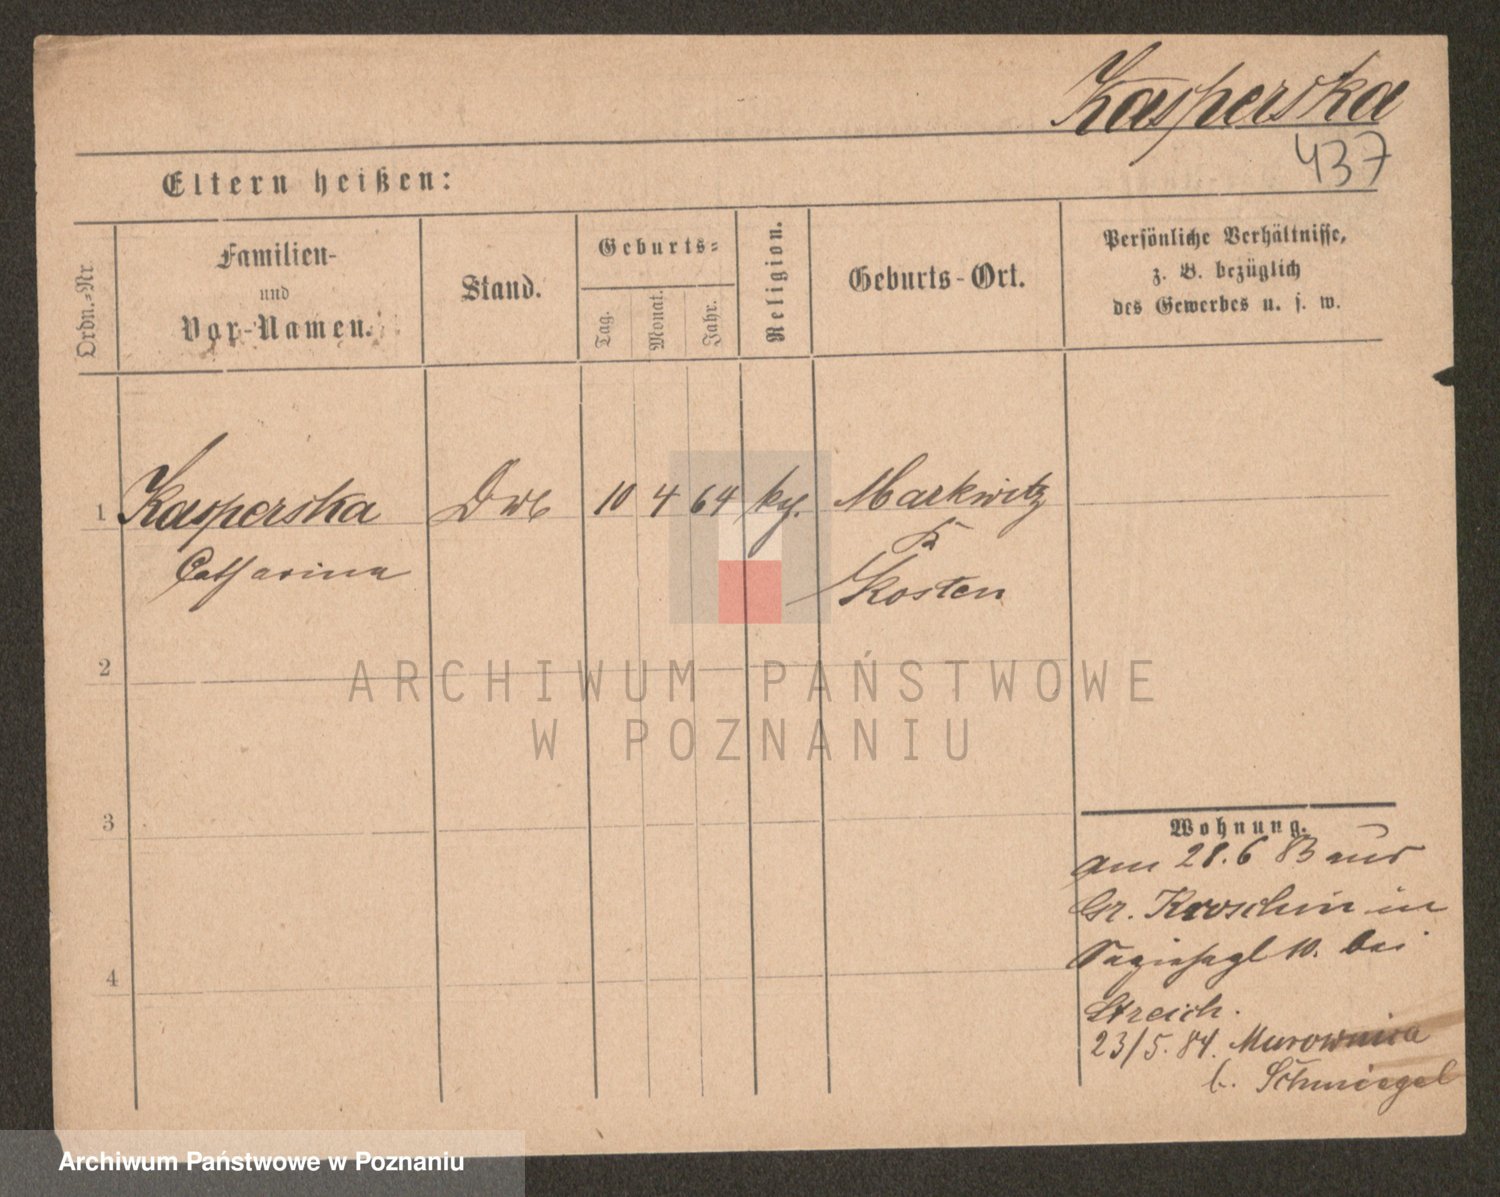 Kasperska
437
Eltern heißen:
Ordn.=Nr
Familien-
und
Vor-Namen.
Stand.
Geburts=
Tag.
Monat.
Jahr.
Religion.
Geburts-Ort.
Persönliche Verhältnisse,
z. B. bezüglich
des Gewerbes u. s. w.
1 Kasperska 10 4 64 Markwitz
Catharina
Kosten
2
3
4
Wohnung.
am 28.6 83 aus
Gr. Kroschin in
10. bei
Streich.
23/5. 84. Murownica
b. Schmiegel
ARCHIWUM PAŃSTWOWE
W POZNANIU
Archiwum Państwowe w Poznaniu